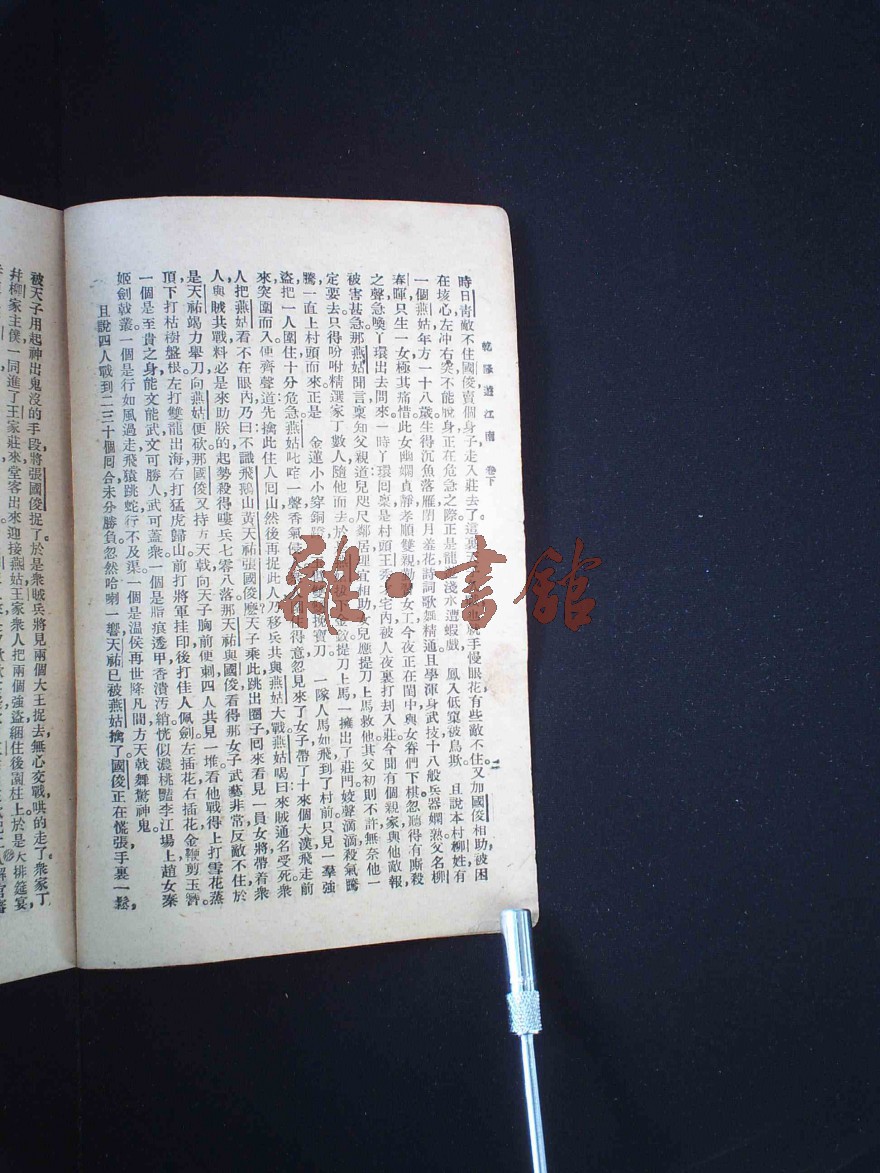 乾隆遊江南 卷下
十一
時日青敵不住國俊賣個身子走入莊去了這裏天 手慢眼花有些敵不住又加國俊相助被困
在垓心左冲右突不能脫身正在危急之際正是龍 淺水遭蝦戲 鳳入低窠被鳥欺 且說本村柳姓有
一個燕姑年方一十八歲生得沉魚落雁閉月羞花詩詞歌舞精通且學渾身武技十八般兵器嫻熟父名柳
春暉只生一女極其痛惜此女幽嫻貞靜孝順雙親勤 女工今夜正在閨中與女眷們下棋忽聽得有厮殺
之聲急喚丫環出去問來一時丫環回稟是村頭王 宅內被人夜裏打刦入莊今聞有個親家與他敵報
被害甚急那燕姑聞言稟知父親道兒咫尺鄰居理宜相助女兒應提刀上馬救他其父初則不許無奈他一
定要去只得吩咐精選家丁數人隨他而去於 提刀上馬一擁出了莊門姣聲滴滴殺氣騰
騰一直上村頭而來正是 金蓮小小穿銅 攬寶刀 一隊人馬如飛到了村前只見一羣強
盜把一人圍住十分危急燕姑叱咤一聲香氣 得意忽見來了女子帶了十來個大漢飛走前
來突圍而入便齊聲道先擒此住人回山然後再捉此人乃移兵共與燕姑大戰燕姑喝曰來賊通名受死衆
人把燕姑看不在眼內乃曰不識飛鵝山黃天祐張國俊麽天子乘此跳出圈子回來看見一員女將帶着衆
人與賊共戰料必是來助朕的起勢殺得嘍兵七零八落那天祐與國俊看得那女子武藝非常反敵不住於
是天祐竭力舉刀向燕姑便砍那國俊又持方天戟向天子胸前便刺四人共見一堆看他戰得上打雪花蓋
頂下打枯樹盤根左打雙龍出海右打猛虎歸山前打將軍挂印後打佳人佩劍左插花右插花金鞭剪玉簪
一個是至貴之身能文能武文可勝人武可蓋衆一個是脂痕透甲香漬汚綃恍似濃桃豔李江場上趙女秦
姬劍戟叢一個是行如風過走飛猿跳蛇行不及渠一個是溫侯再世降凡間方天戟舞驚神鬼
且說四人戰到二三十個囘合未分勝負忽然哈喇一響天祐已被燕姑擒了國俊正在慌張手裏一鬆
被天子用起神出鬼沒的手段將張國俊捉了於是衆賊兵將見兩個大王捉去無心交戰哄的走了衆家丁
幷柳家主僕一同進了王家莊來堂客出來迎接燕姑王家衆人把兩個強盜綑住後園柱上於是大排筵宴
雜·書館